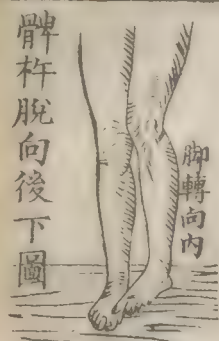 髀杵脫向後下圖
脚轉向內